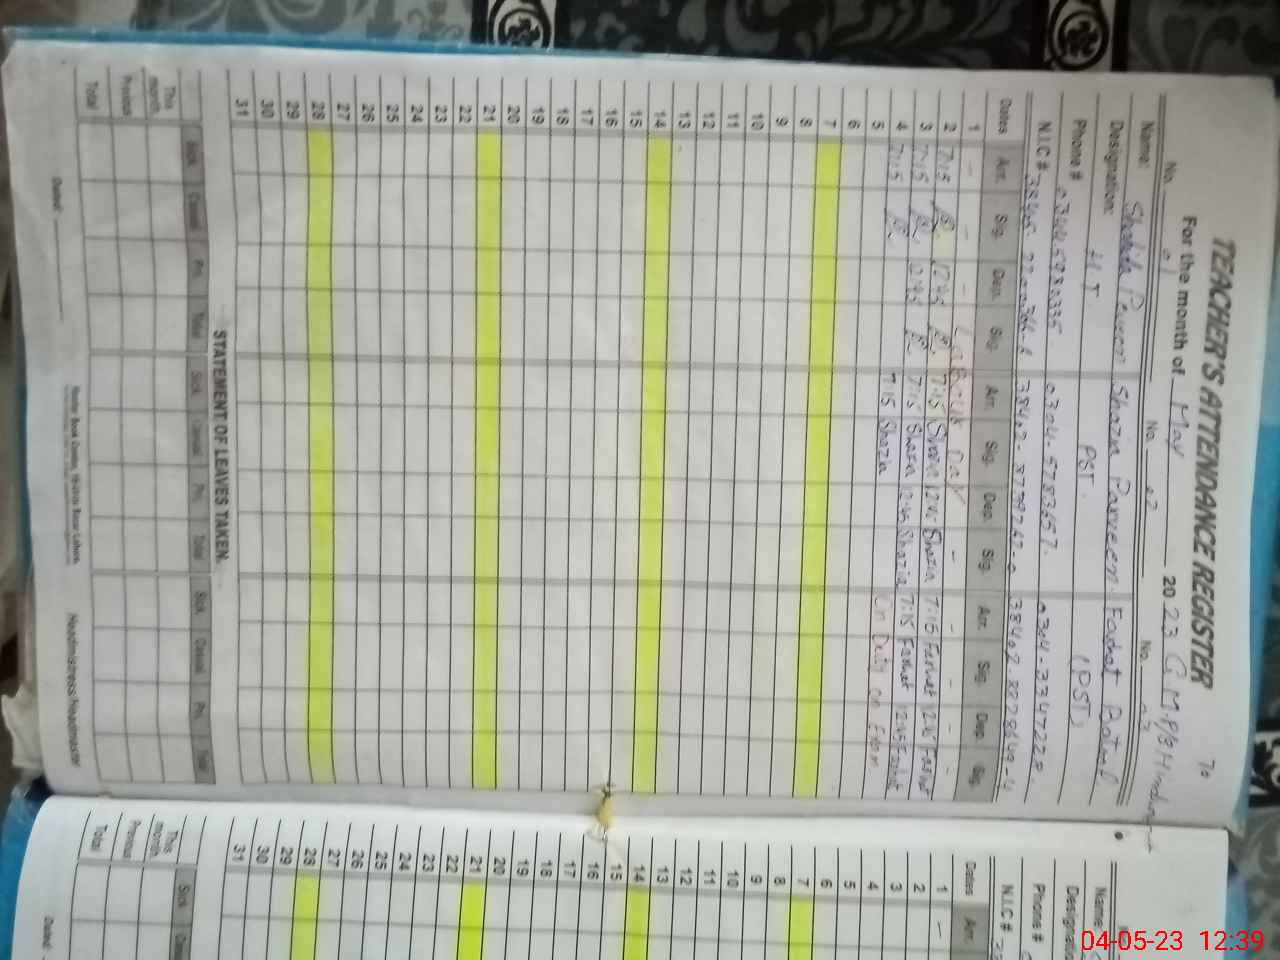 70
TEACHER'S ATTENDANCE REGISTER
For the month of May 2023 G.M.P/S
No. 01 No. 02 No. 03
Name: Shahida Parveen Shazia Parveen Farhat Batool
Designation: H.T PST. (PST)
Phone # 0304-5783657. 0304-3347228.
N.I.C #
Dates Arr. Sig. Dep. Sig. Arr. Sig. Dep. Sig. Arr. Sig. Dep. Sig.
1 - - - Labour Day - - - -
2 7:15 12:45 7:15 Shazia 12:45 Shazia 7:15 Farhat 12:45 Farhat
3 7:15 12:45 7:15 Shazia 12:45 Shazia 7:15 Farhat 12:45 Farhat
4 7:15 7:15 Shazia On Duty on Exam
5
6
7
8
9
10
11
12
13
14
15
16
17
18
19
20
21
22
23
24
25
26
27
28
29
30
31
STATEMENT OF LEAVES TAKEN
Sick Casual Pri. Total Sick Casual Pri. Total Sick Casual Pri. Total
This month
Previous
Total
Dated: Headmistress/Headmaster
Name
Designati
Phone #
N.I.C #
Dates Arr.
1 -
2
3
4
5
6
7
8
9
10
11
12
13
14
15
16
17
18
19
20
21
22
23
24
25
26
27
28
29
30
31
Sick
This month
Previous
Total
Dated:
04-05-23 12:39